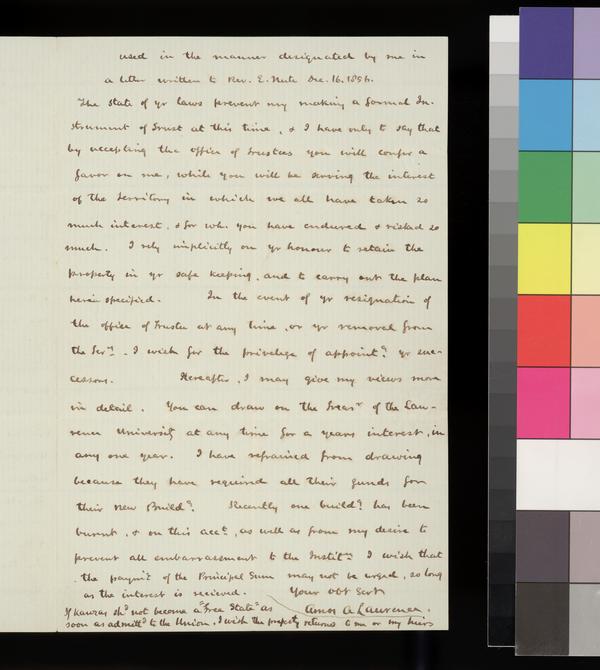 used in the manner designated by me in
a letter written to Rev. E. Nute Dec. 16. 1856.
The State of yr laws prevent my making a formal In-
strument of Trust at this time, & I have only to say that
by accepting the office of trustees you will confer a
favor on me, while you will be serving the interest
of the Territory in which we all have taken so
much interest, & for whh you have endured & risked so
much. I rely implicitly on yr honour to retain the
property in yr safe keeping, and to carry out the plan
herein specified. In the event of yr resignation of
the office of Trustee at any time, or yr removal from
the Terry. I wish for the privelege of appointg yr suc-
cessors. Hereafter, I may give my views more
in detail. You can draw on the Treasr of the Law-
rence University at any time for a years interest, in
any one year. I have refrained from drawing
because they have required all their funds for
their new Buildg. Recently one buildg has been
burnt, & on this acct, as well as from my desire to
prevent all embarrassment to the Institn I wish that
the paymt of the Principal Sum may not be urged, so long
as the interest is recieved. Your obt Servt
Amos A Lawrence.
If Kanzas shd not become a "Free State" as
soon as admittd to the Union, I wish the property returned to me or my heirs